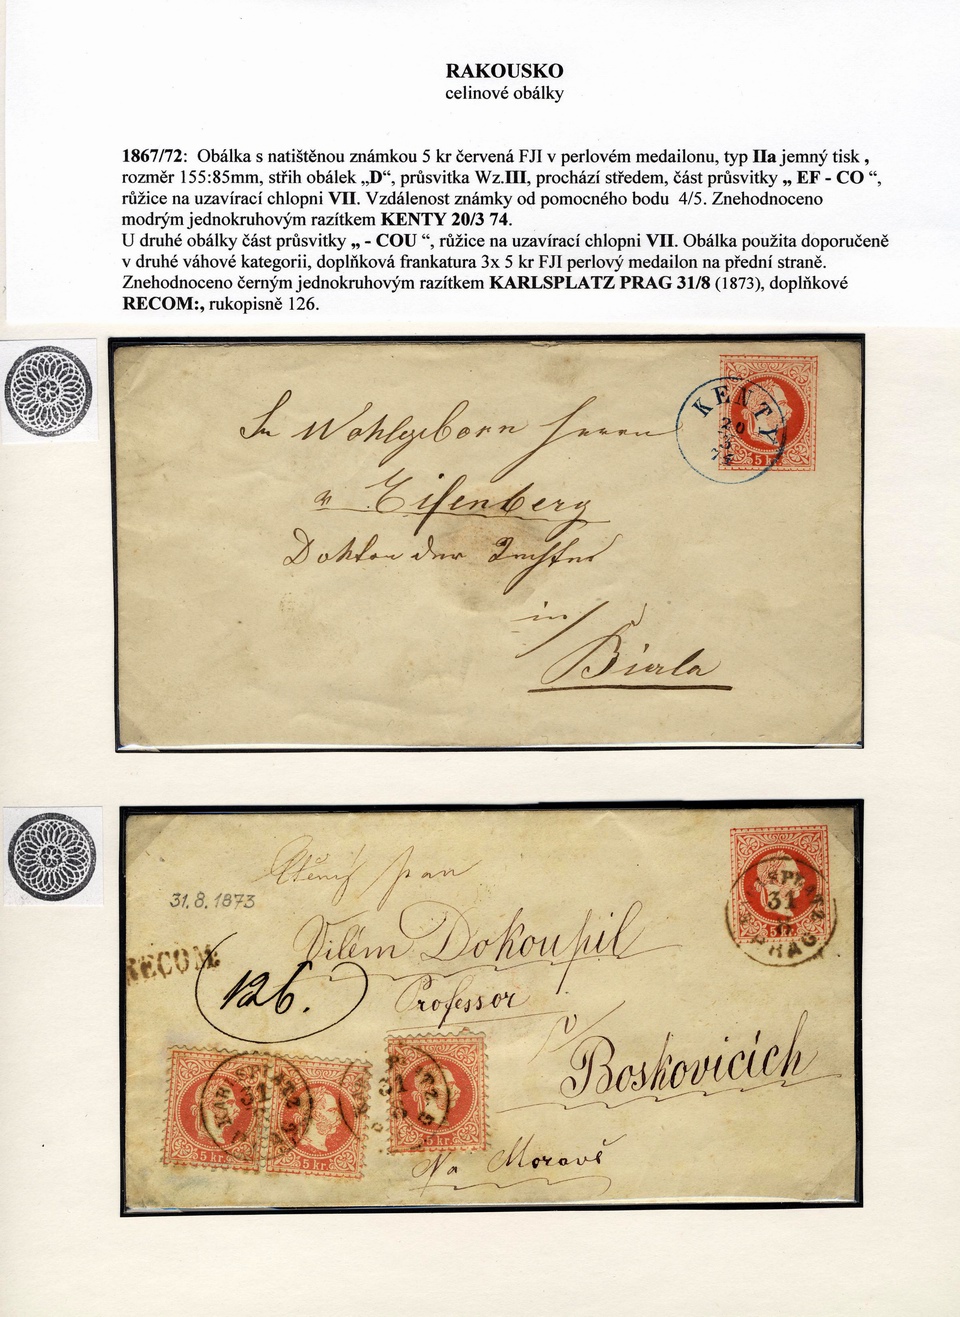 RAKOUSKO
celinové obálky
1867/72: Obálka s natištěnou známkou 5 kr červená FJI v perlovém medailonu, typ IIa jemný tisk ,
rozměr 155:85mm, střih obálek „D“, průsvitka Wz.III, prochází středem, část průsvitky „ EF - CO “,
růžice na uzavírací chlopni VII. Vzdálenost známky od pomocného bodu 4/5. Znehodnoceno
modrým jednokruhovým razítkem KENTY 20/3 74.
U druhé obálky část průsvitky „ - COU “, růžice na uzavírací chlopni VII. Obálka použita doporučeně
v druhé váhové kategorii, doplňková frankatura 3x 5 kr FJI perlový medailon na přední straně.
Znehodnoceno černým jednokruhovým razítkem KARLSPLATZ PRAG 31/8 (1873), doplňkové
RECOM:, rukopisně 126.
KENTY
20
3
74
5 kr.
Sr Wohlgeborn Herrn
v. Eisenberg
Doktor der Rechte
in
Biala
31
PRAG
5 kr.
31.8.1873
pan
RECOM:
Vilém Dokoupil
126.
Professor
v
Boskovicích
KARLSPLATZ
31
5 kr.
5 kr.
31
5 kr.
Na Moravě